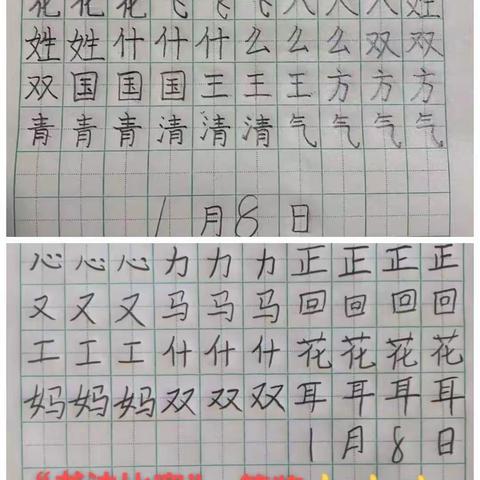 花花花飞飞飞入入入姓
姓姓什什什么么么双双
双国国国王王王方方方
青青青清清清气气气气
1月8日
心心心力力力正正正正
又又又马马马回回回回
工工工什什什花花花花
妈妈妈双双双耳耳耳耳
1月8日